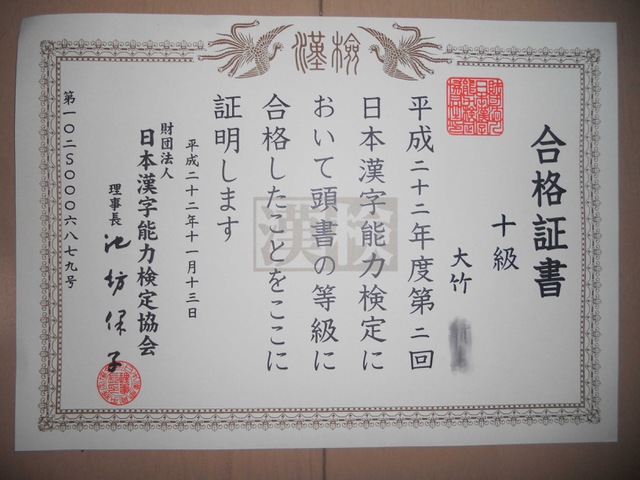 漢検
合格証書
十級
大竹
平成二十二年度第二回
日本漢字能力検定に
おいて頭書の等級に
合格したことをここに
証明します
平成二十二年十一月十三日
財団法人
日本漢字能力検定協会
理事長 池坊保子
第一〇二S〇〇〇六八七九号
漢検